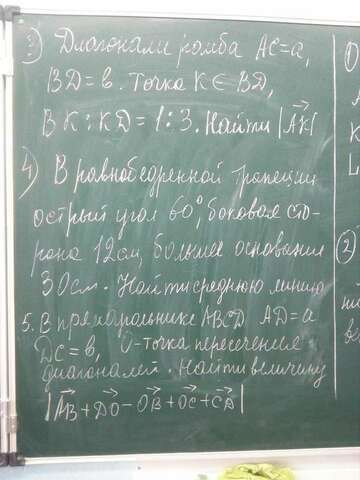 3) Диагонали ромба AC=a,
BD=в. Точка K∈BD,
BK:KD=1:3. Найти |AK→|
4) В равнобедренной трапеции
острый угол 60°, боковая сто-
рона 12см, большее основание
30см. Найти среднюю линию
5. В прямоугольнике ABCD AD=a
DC=в, O-точка пересечения
диагоналей. Найти величину
|AB→+DO→-OB→+OC→+CD→|